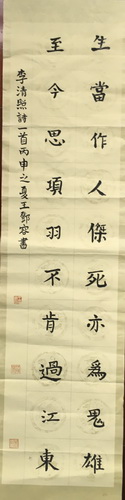 生當作人傑死亦爲鬼雄
至今思項羽不肯過江東
李清照詩一首丙申之夏王鄧容書